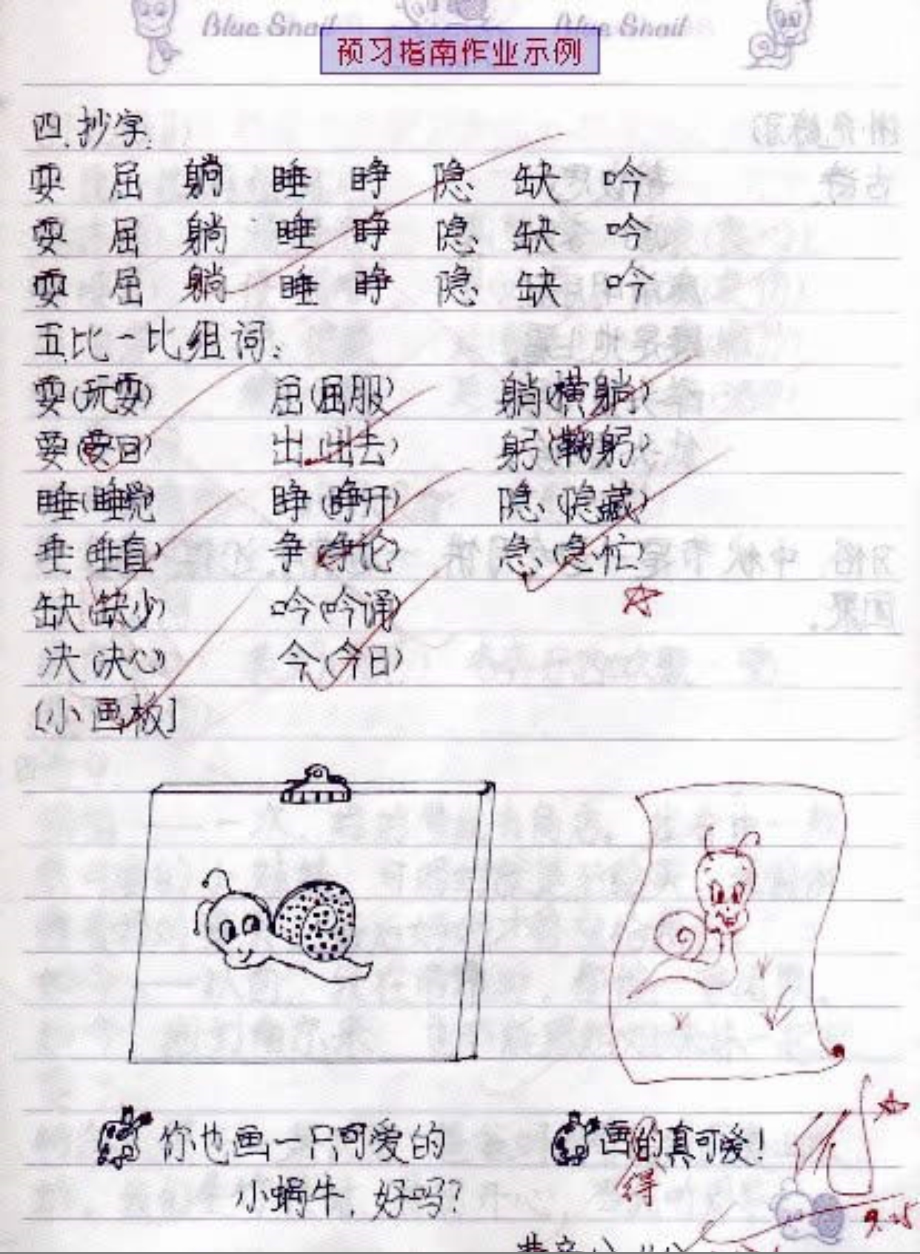 Blue Snail Blue Snail
预习指南作业示例
四.抄字.
耍 屈 躺 睡 睁 隐 缺 吟
耍 屈 躺 睡 睁 隐 缺 吟
耍 屈 躺 睡 睁 隐 缺 吟
五.比一比组词:
耍(玩耍) 屈(屈服) 躺(横躺)
要(要日) 出(出去) 躬(鞠躬)
睡(睡觉) 睁(睁开) 隐(隐藏)
垂(垂直) 争(争论) 急(急忙)
缺(缺少) 吟(吟诵)
决(决心) 今(今日)
[小画板]
你也画一只可爱的 画的真可爱!
小蜗牛,好吗? 得
优
9.25